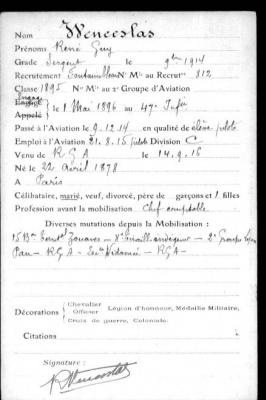 Nom Wenceslas
Prénoms René Guy
Grade Sergent le 9bre 1914
Recrutement Fontainebleau No Mle au Recrutt 812
Classe 1895 No Mle au 2e Groupe d'Aviation
Engagé
Appelé
le 1 Mai 1896 au 47e Infie
Passé à l'Aviation le 9.12.14 en qualité de élève pilote
Emploi à l'Aviation 21.8.15 pilote Division C
Venu de R G A le 14.9.16
Né le 22 avril 1878
A Paris
Célibataire, marié, veuf, divorcé, père de garçons et 1 filles
Profession avant la mobilisation Chef comptable
Diverses mutations depuis la Mobilisation :
Zouaves — 2e Groupe
Pau — R G A — — R G A —
Décorations
Chevalier
Officier
Légion d'honneur, Médaille Militaire,
Croix de guerre, Coloniale.
Citations
Signature :
RWenceslas